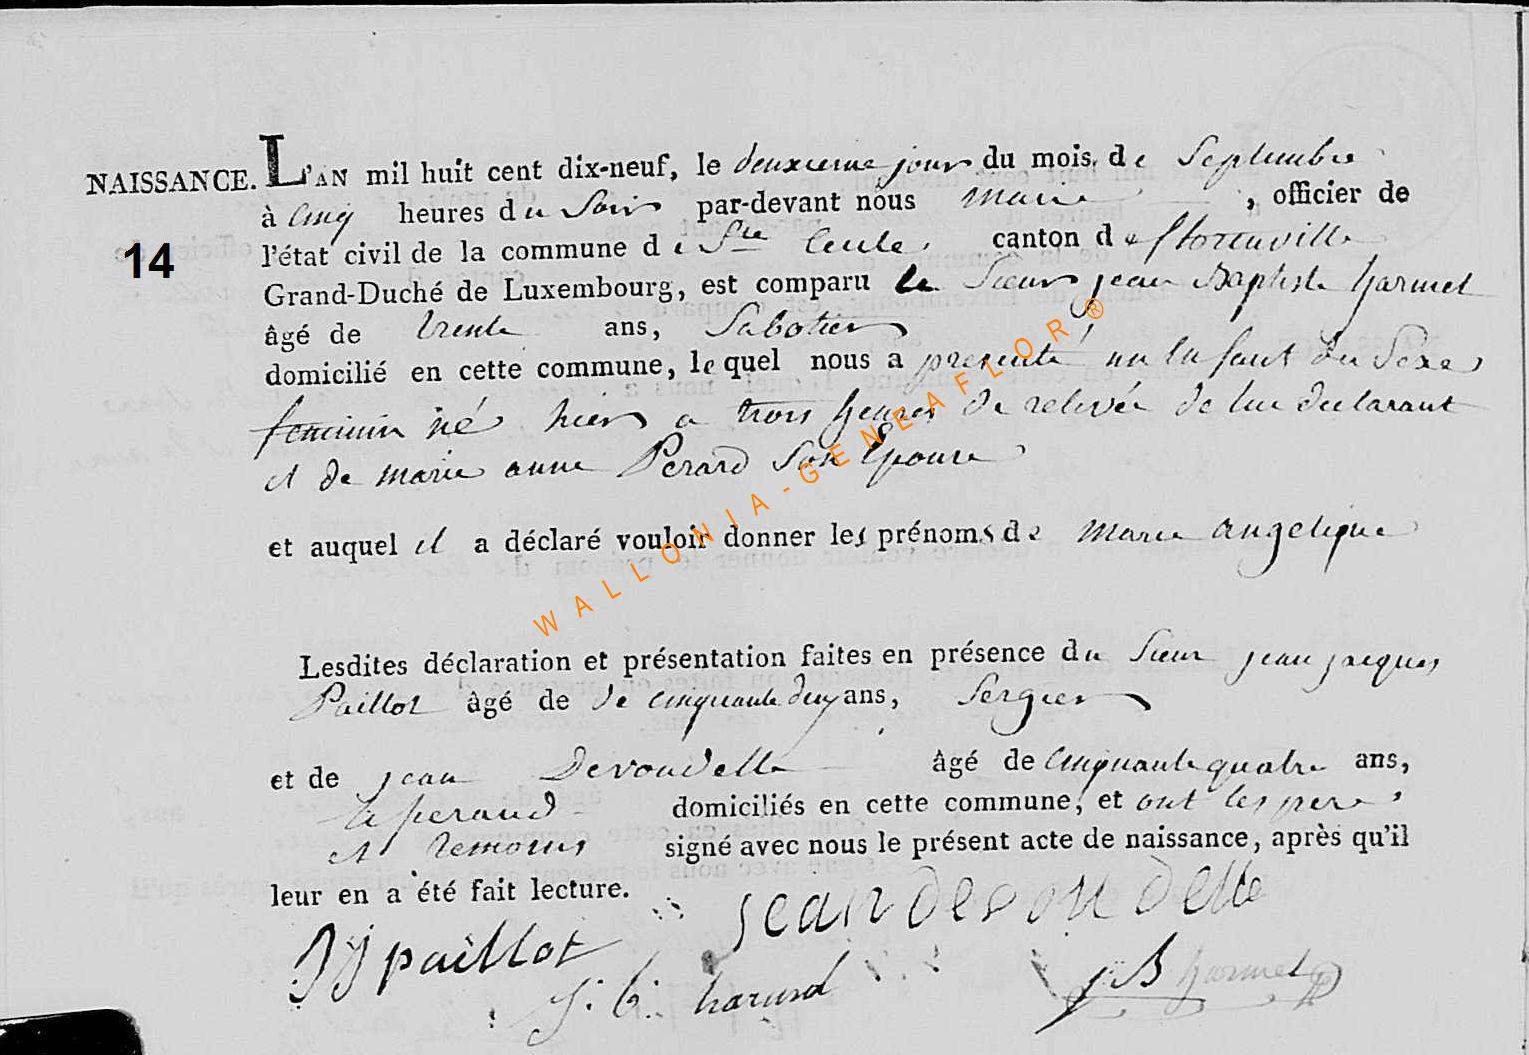 NAISSANCE. L'AN mil huit cent dix-neuf, le deuxieme jour du mois de Septembre
à cinq heures du Soir par-devant nous maire, officier de
14
l'état civil de la commune de Ste Cecile canton de florenville
Grand-Duché de Luxembourg, est comparu le Sieur jean Baptiste harmel
âgé de trente ans, Sabotier
domicilié en cette commune, lequel nous a presenté un Enfant du Sexe
feminin né hier a trois heures de relevée de lui declarant
et de marie anne Perard Son Epouse
et auquel il a déclaré vouloir donner les prénoms de marie angelique
Lesdites déclaration et présentation faites en présence du Sieur jean jacques
Paillot âgé de de cinquante deux ans, Sergier
et de jean Devoudelle âgé de cinquante quatre ans,
domiciliés en cette commune, et ont les pere
et temoins signé avec nous le présent acte de naissance, après qu'il
leur en a été fait lecture.
jean devoudelle
JJ paillot
J. B. JB harmel
WALLONIA-GENEAFLOR ®